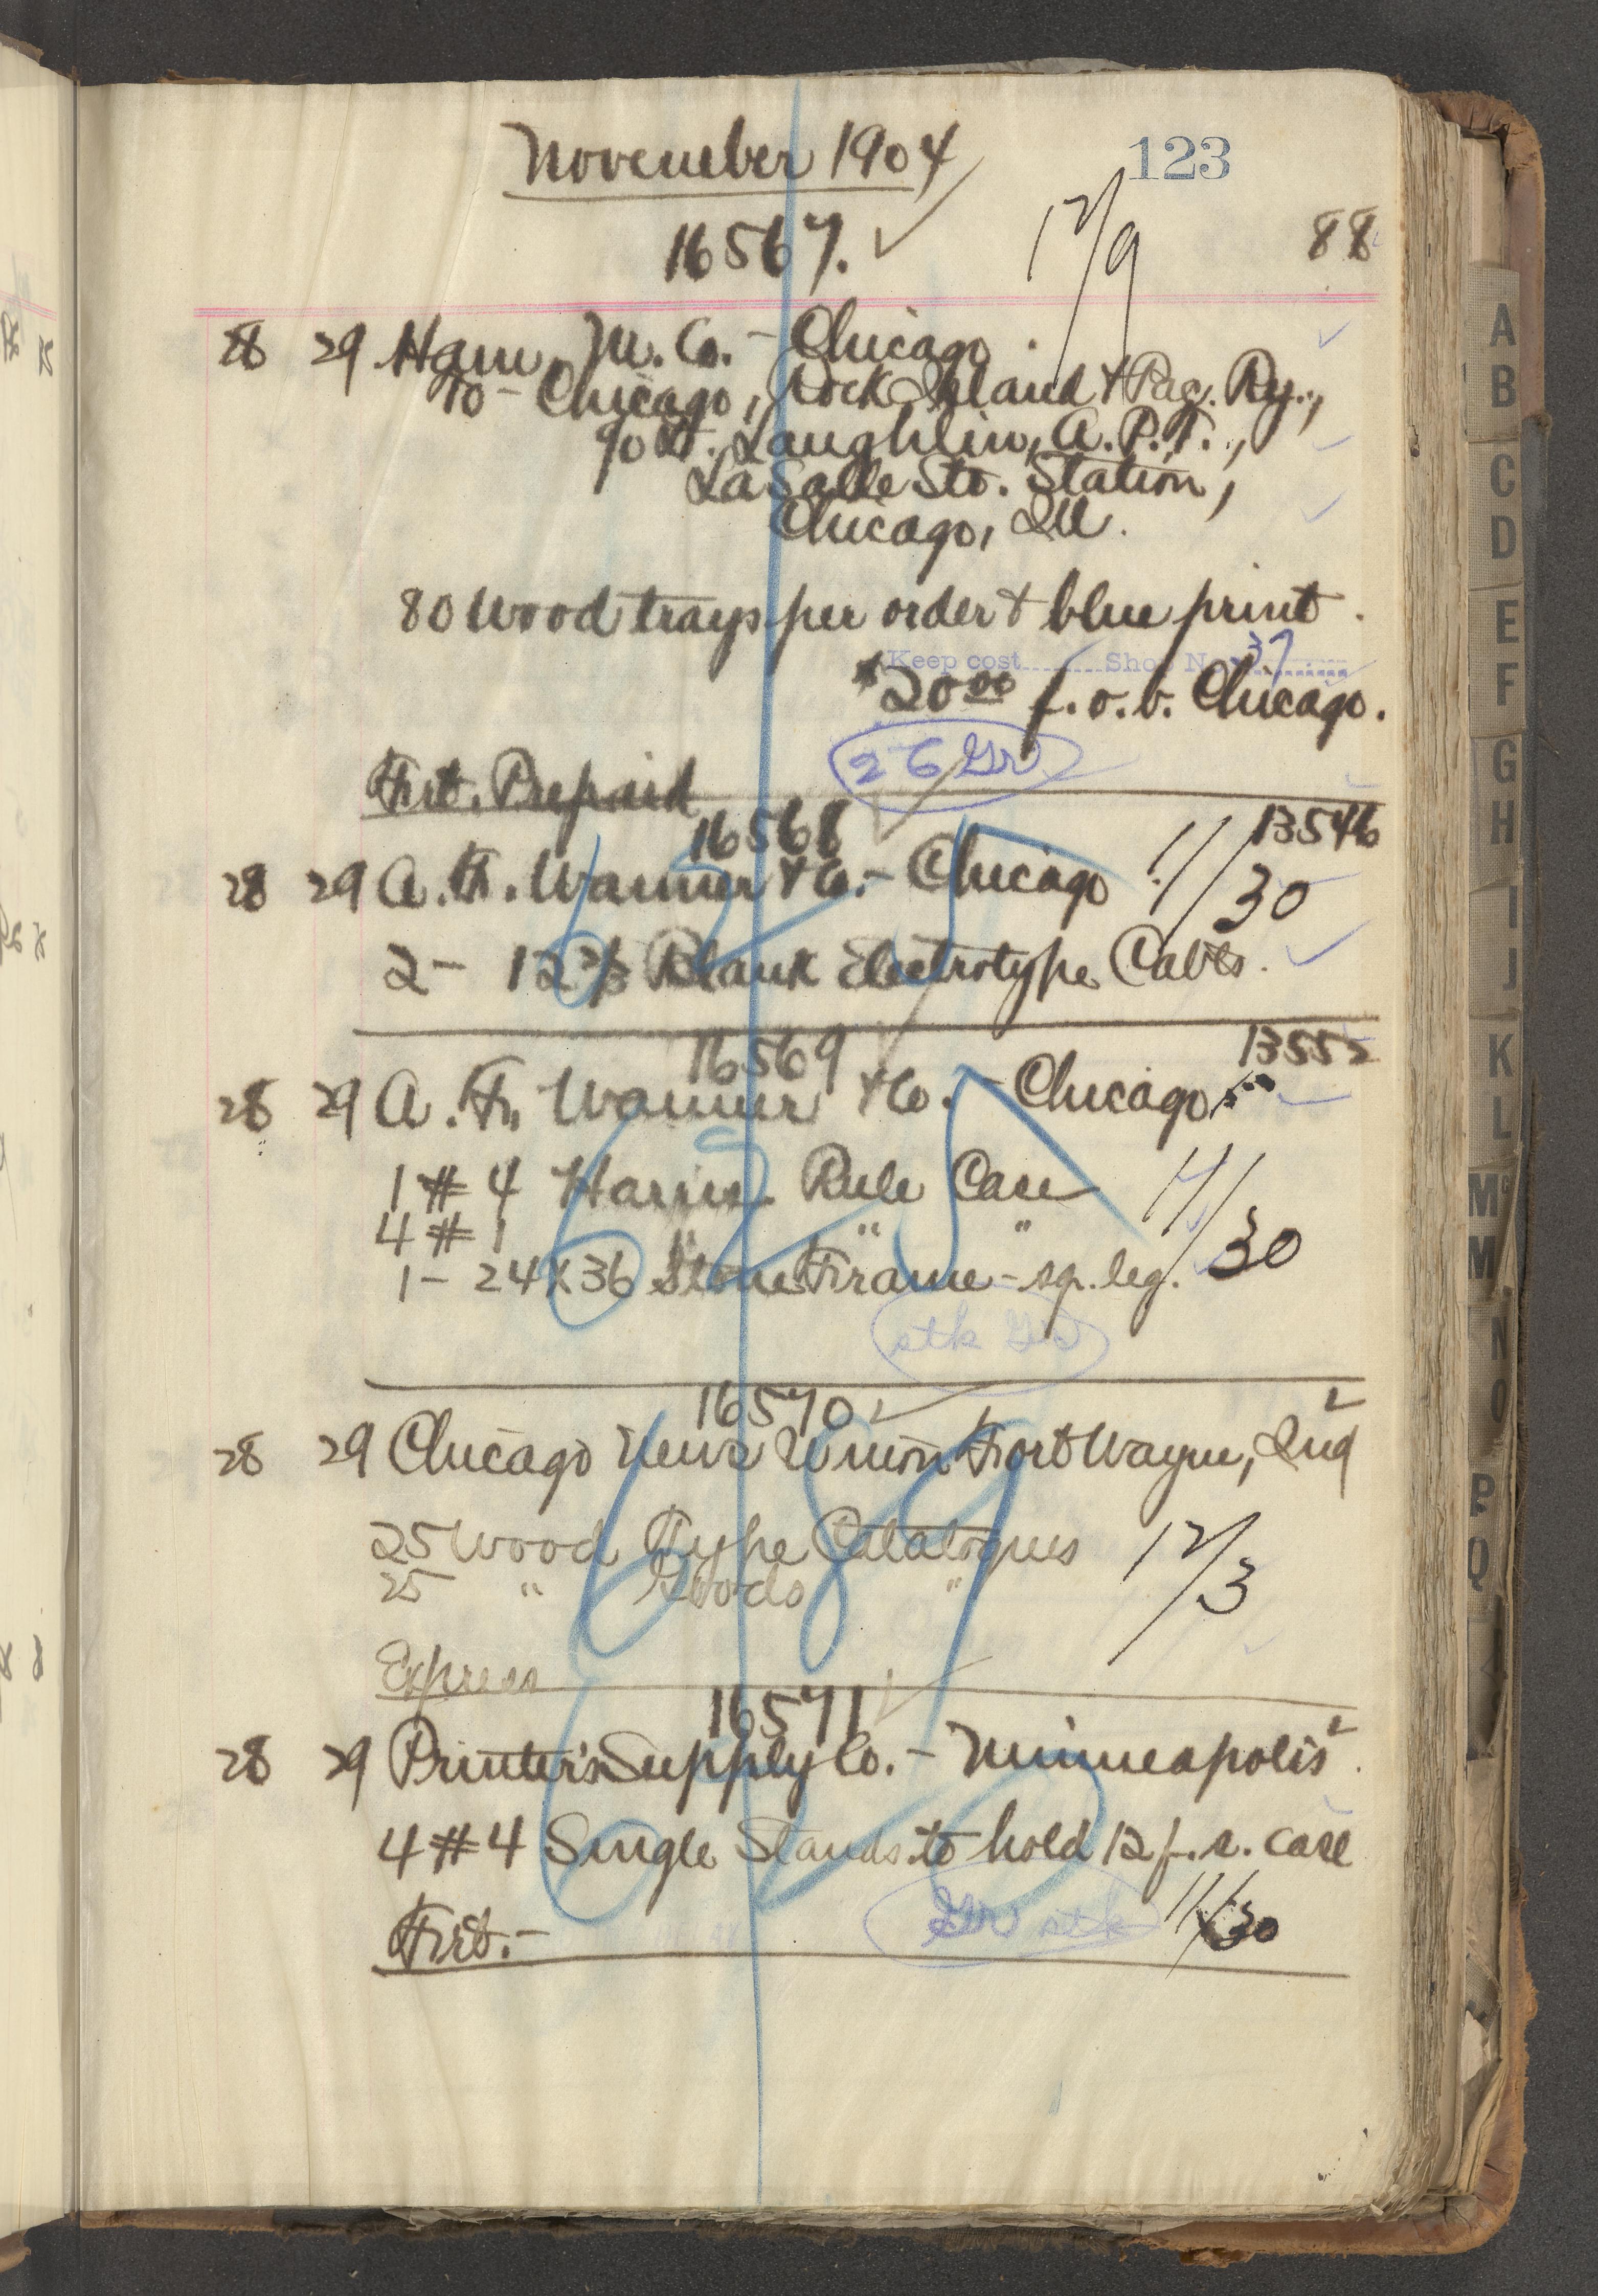 November 1904
123
16567.
12/9
88
28 29 Ham. M. Co. - Chicago.
To - Chicago, Rock Island & Pac. Ry.,
% Laughlin, A. P. T.,
La Salle Sta. Station,
Chicago, Ill.
80 Wood trays per order & blue print.
Keep cost Shop No. 37
$20.00 f. o. b. Chicago.
26 Gr
Frt. Prepaid
16568
13546
28 29 A. F. Wanner & Co. - Chicago 11/30
2 - 12 2/3 Blank Electrotype Cabts.
16569
13552
28 29 A. F. Wanner & Co. - Chicago
1 # 4 Harris Rule Case 11/30
4 # 1 " " "
1 - 24 X 36 Stone Frame - sp. leg.
stk Gr
16570
2
28 29 Chicago News Union Fort Wayne, Ind
25 Wood Type Catalogues 12/3
25 " Goods "
Express
16571
2
28 29 Printer's Supply Co. - Minneapolis.
4 # 4 Single Stands to hold 12 f. s. case
Frt. - Gr stk 11/30
A
B
C
D
E
F
G
H
I
J
K
L
Mc
M
N
O
P
Q